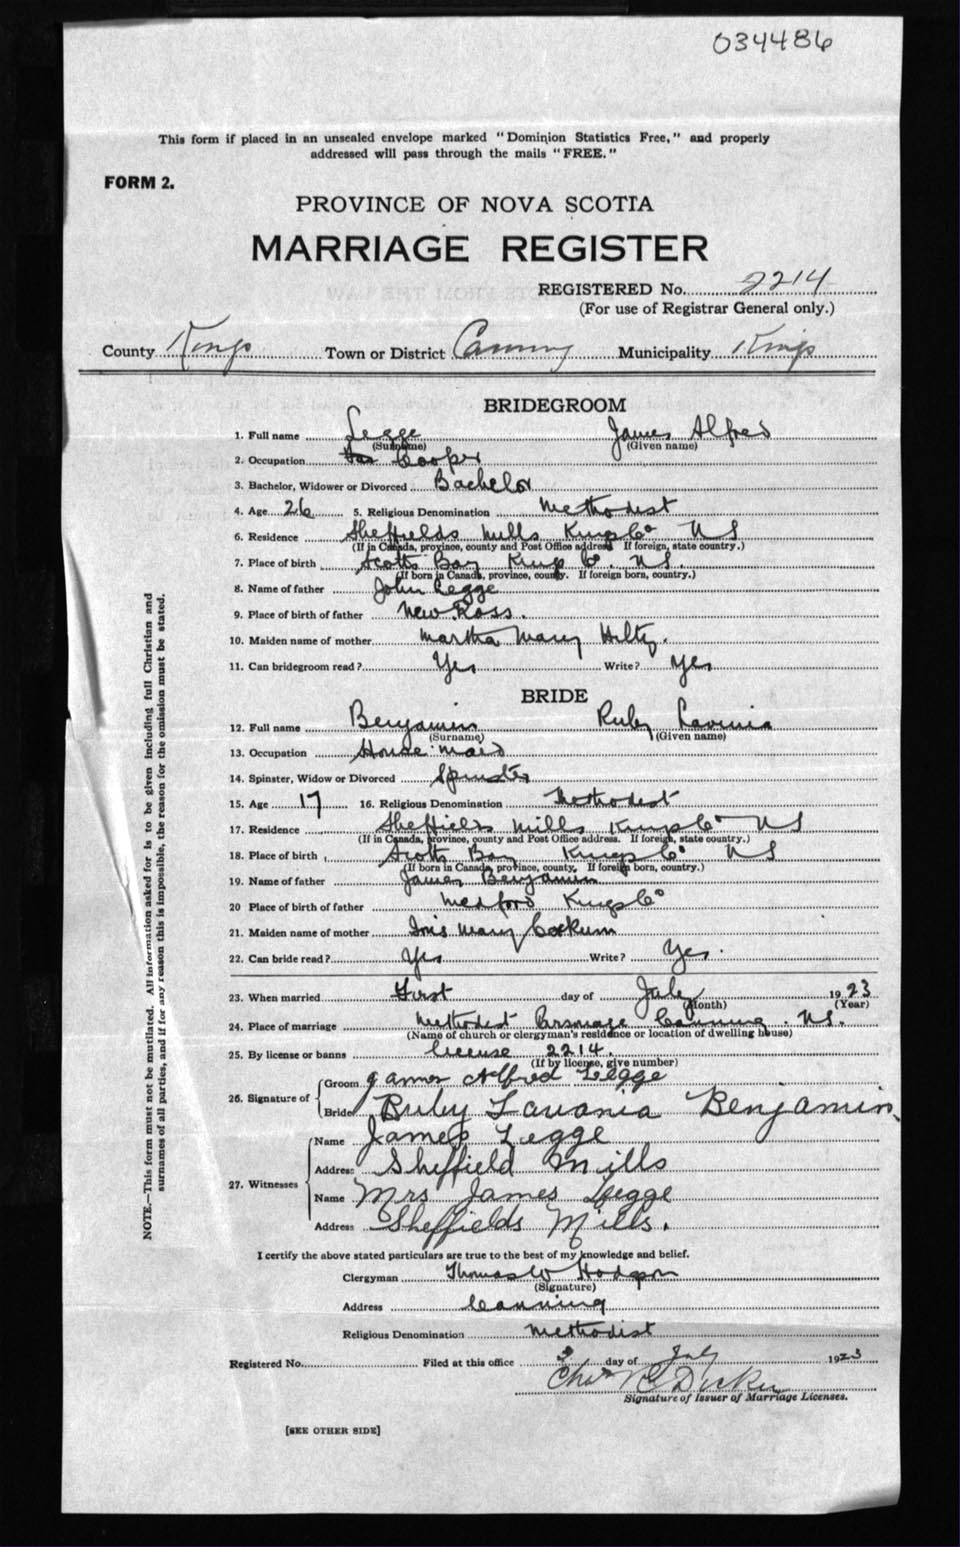 034486
This form if placed in an unsealed envelope marked "Dominion Statistics Free," and properly
addressed will pass through the mails "FREE."
FORM 2.
PROVINCE OF NOVA SCOTIA
MARRIAGE REGISTER
REGISTERED No. 2214
(For use of Registrar General only.)
County Kings Town or District Canning Municipality Kings
BRIDEGROOM
1. Full name Legge James Alfred
(Surname) (Given name)
2. Occupation Cooper
3. Bachelor, Widower or Divorced Bachelor
4. Age 26 5. Religious Denomination Methodist
6. Residence Sheffields Mills Kings Co NS
(If in Canada, province, county and Post Office address. If foreign, state country.)
7. Place of birth Scotts Bay Kings Co. NS.
(If born in Canada, province, county. If foreign born, country.)
8. Name of father John Legge
9. Place of birth of father New Ross.
10. Maiden name of mother Martha Mary Hiltz.
11. Can bridegroom read? Yes Write? Yes
BRIDE
12. Full name Benjamin Ruby Lavinia
(Surname) (Given name)
13. Occupation House maid
14. Spinster, Widow or Divorced Spinster
15. Age 17 16. Religious Denomination Methodist
17. Residence Sheffields Mills Kings Co NS
(If in Canada, province, county and Post Office address. If foreign, state country.)
18. Place of birth Scotts Bay Kings Co NS
(If born in Canada, province, county. If foreign born, country.)
19. Name of father James Benjamin
20 Place of birth of father Medford Kings Co
21. Maiden name of mother Mary
22. Can bride read? Yes Write? Yes.
23. When married First day of July 1923
(Month) (Year)
24. Place of marriage Methodist Parsonage Canning. NS.
(Name of church or clergyman's residence or location of dwelling house)
25. By license or banns license 2214.
(If by license, give number)
26. Signature of
Groom James Alfred Legge
Bride Ruby Lavania Benjamin
27. Witnesses
Name James Legge
Address Sheffield Mills
Name Mrs James Legge
Address Sheffields Mills.
I certify the above stated particulars are true to the best of my knowledge and belief.
Clergyman Thomas W Hodgson
(Signature)
Address Canning
Religious Denomination Methodist
Registered No. Filed at this office 3 day of July 1923
Signature of Issuer of Marriage Licenses.
[SEE OTHER SIDE]
NOTE.—This form must not be mutilated. All information asked for is to be given including full Christian and
surnames of all parties, and if for any reason this is impossible, the reason for the omission must be stated.